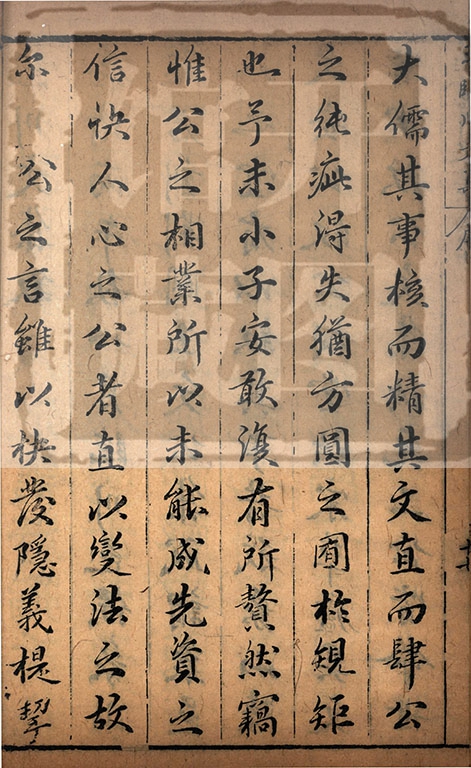 大儒其事核而精其文直而肆公
之純疵得失猶方圓之囿於規矩
也予末小子安敢復有所贅然竊
惟公之相業所以未能成先資之
信決人心之公者直以變法之故
尔公之言雖以抉發隱義提挈